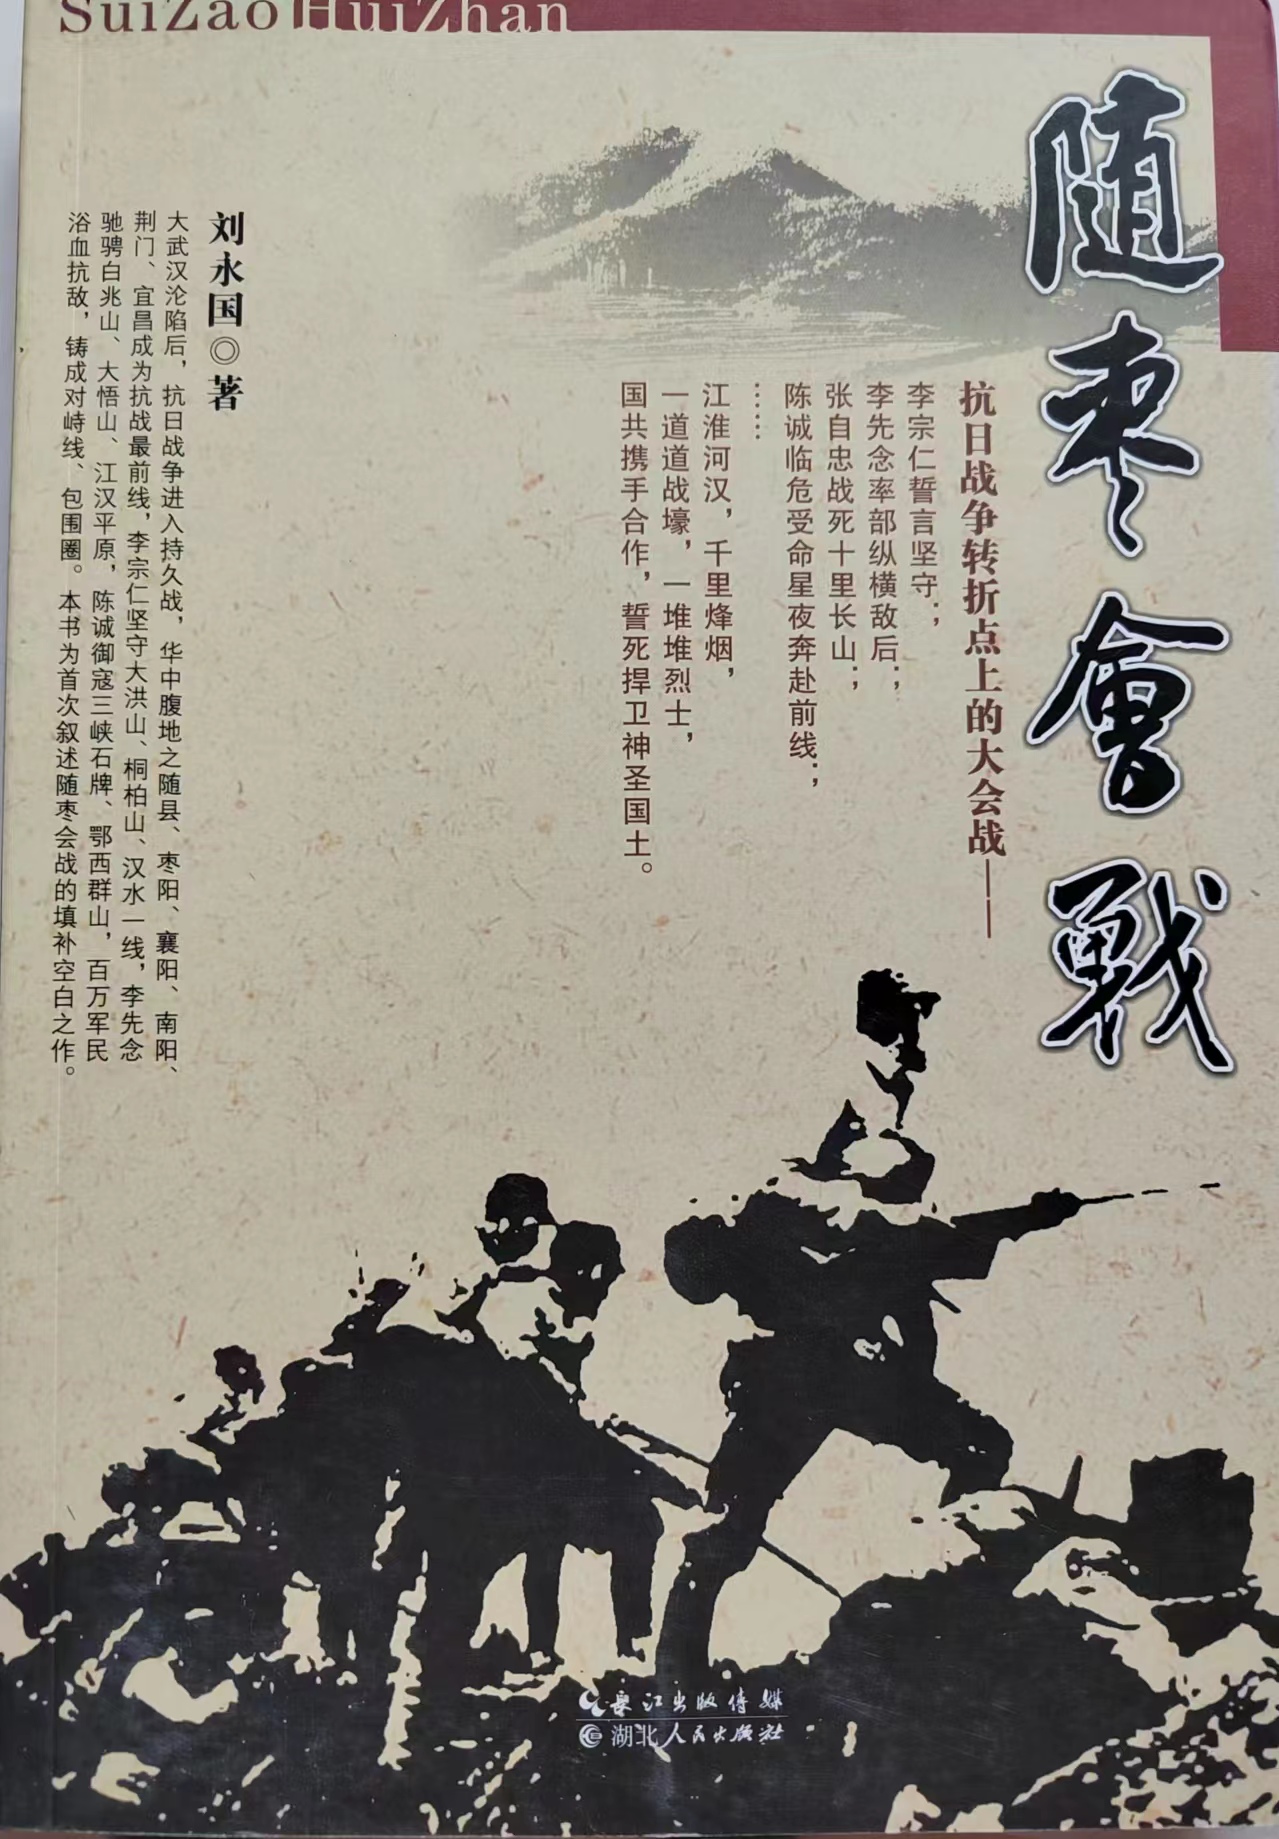 SuiZao HuiZhan
随枣會戰
抗日战争转折点上的大会战——
李宗仁誓言坚守；
李先念率部纵横敌后；
张自忠战死十里长山；
陈诚临危受命星夜奔赴前线；
……
江淮河汉，千里烽烟，
一道道战壕，一堆堆烈士，
国共携手合作，誓死捍卫神圣国土。
刘永国◎著
大武汉沦陷后，抗日战争进入持久战，华中腹地之随县、枣阳、襄阳、南阳、
荆门、宜昌成为抗战最前线，李宗仁坚守大洪山、桐柏山、汉水一线，李先念
驰骋白兆山、大悟山、江汉平原，陈诚御寇三峡石牌、鄂西群山，百万军民
浴血抗敌，铸成对峙线、包围圈。本书为首次叙述随枣会战的填补空白之作。
长江出版传媒
湖北人民出版社